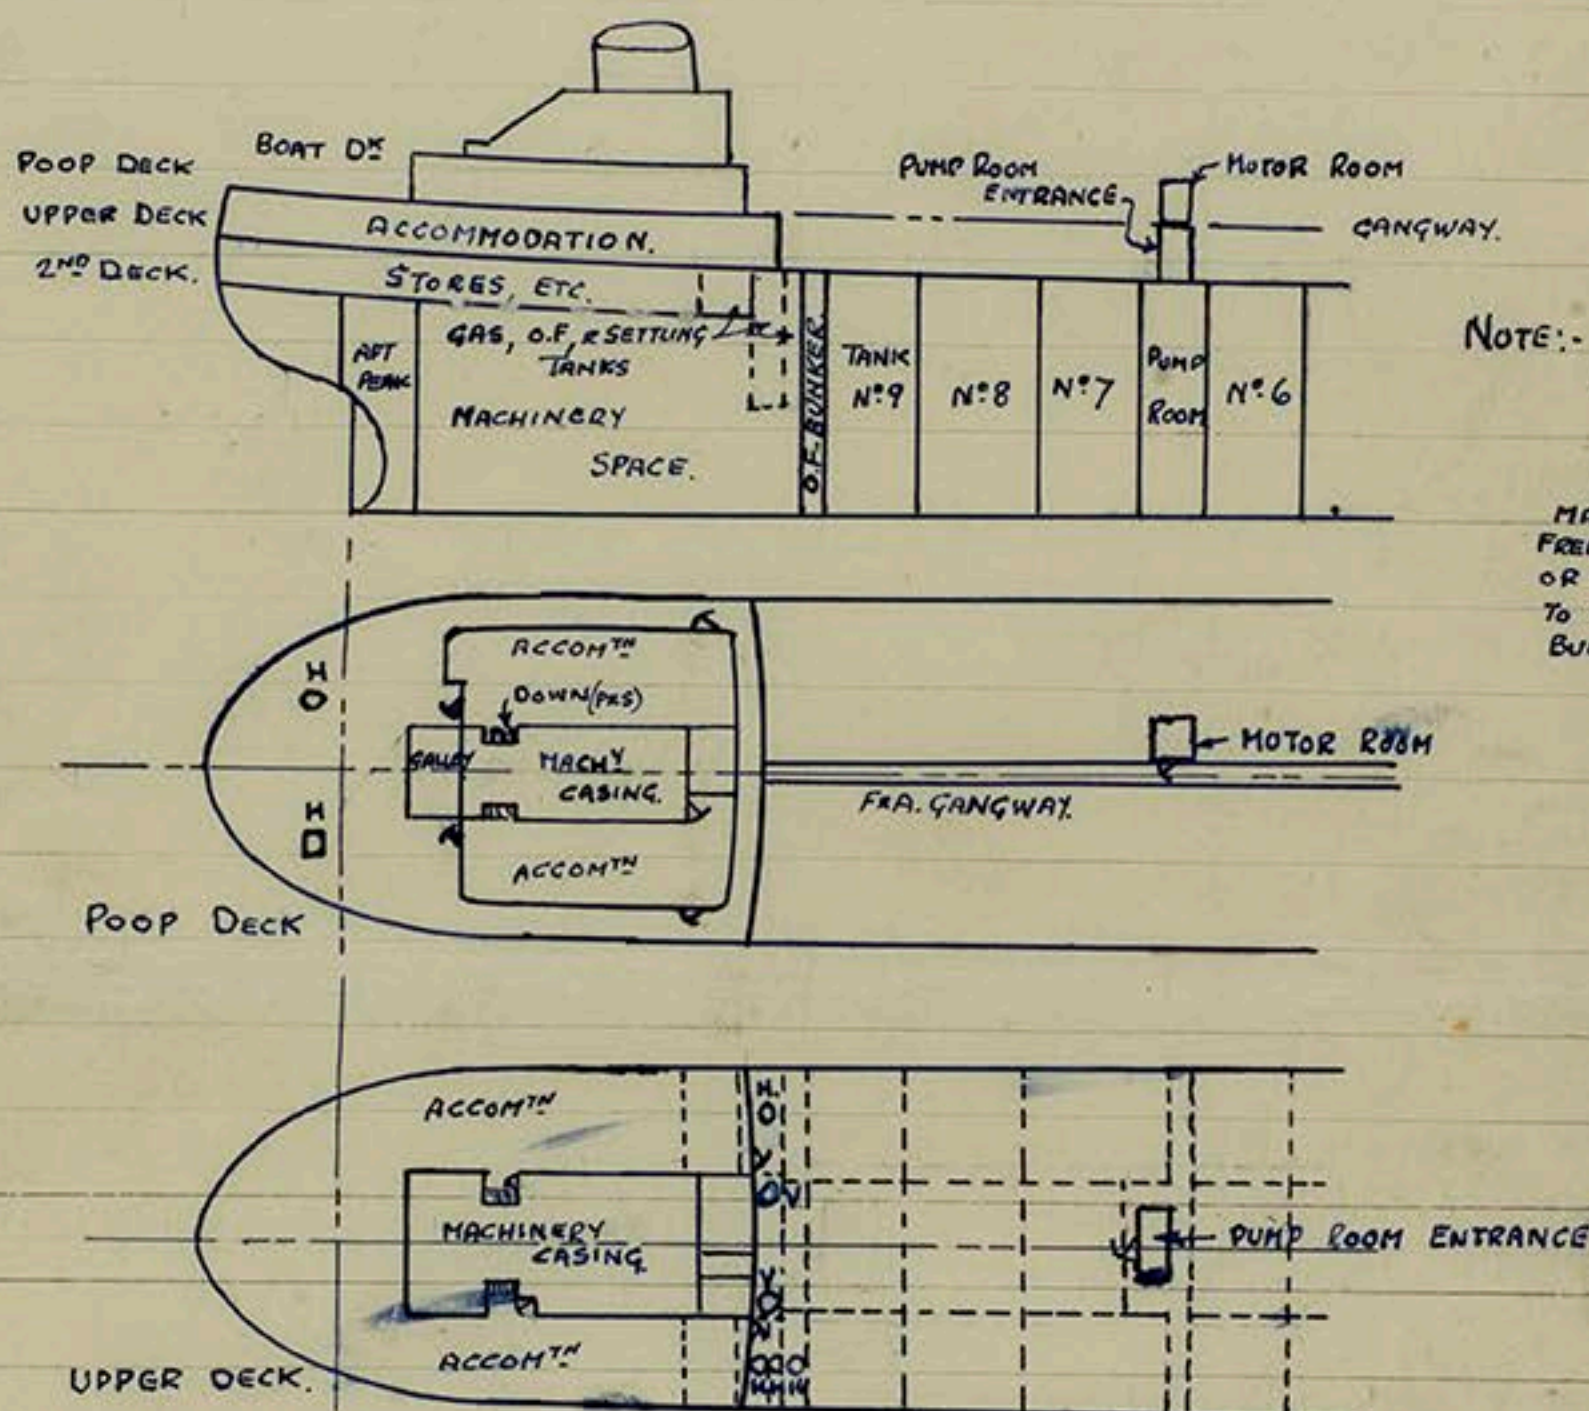 BOAT DK
POOP DECK
UPPER DECK
2ND DECK.
ACCOMMODATION.
STORES, ETC.
GAS, O.F, & SETTLING
TANKS
AFT
PEAK
MACHINERY
SPACE.
O.F. BUNKER
TANK
No 9
No 8
No 7
PUMP
ROOM
No 6
PUMP ROOM
ENTRANCE
MOTOR ROOM
GANGWAY.
NOTE:-
OR
TO
ACCOMTN
DOWN (P&S)
GALLEY
MACHY
CASING.
ACCOMTN
H
H
MOTOR ROOM
F&A. GANGWAY.
POOP DECK
ACCOMTN
MACHINERY
CASING.
ACCOMTN
H.
V
V
PUMP ROOM ENTRANCE
UPPER DECK.